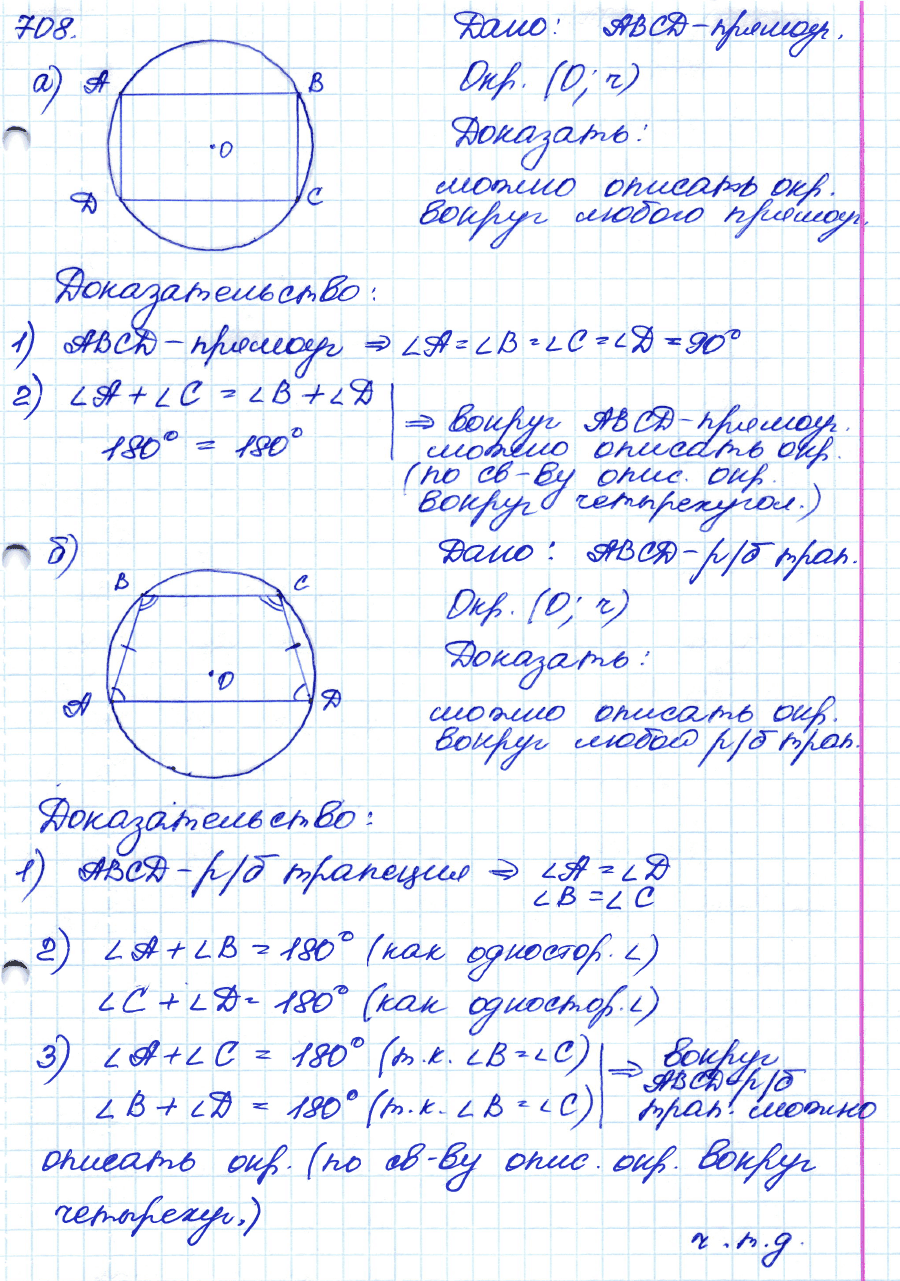 708.
а)
A B
O
D C
Дано: ABCD-прямоуг.
Окр. (O; r)
Доказать:
можно описать окр.
вокруг любого прямоуг.
Доказательство:
1) ABCD-прямоуг ⇒ ∠A=∠B=∠C=∠D=90°
2) ∠A+∠C=∠B+∠D
180° = 180°
⇒ вокруг ABCD-прямоуг.
можно описать окр.
(по св-ву опис. окр.
вокруг четырехугол.)
б)
B C
O
A D
Дано: ABCD-р/б трап.
Окр. (O; r)
Доказать:
можно описать окр.
вокруг любой р/б трап.
Доказательство:
1) ABCD-р/б трапеция ⇒ ∠A=∠D
∠B=∠C
2) ∠A+∠B=180° (как одностор.∠)
∠C+∠D=180° (как одностор.∠)
3) ∠A+∠C = 180° (т.к. ∠B=∠C)
∠B+∠D = 180° (т.к. ∠B=∠C)
⇒ вокруг
ABCD-р/б
трап. можно
описать окр. (по св-ву опис. окр. вокруг
четырехуг.)
ч.т.д.